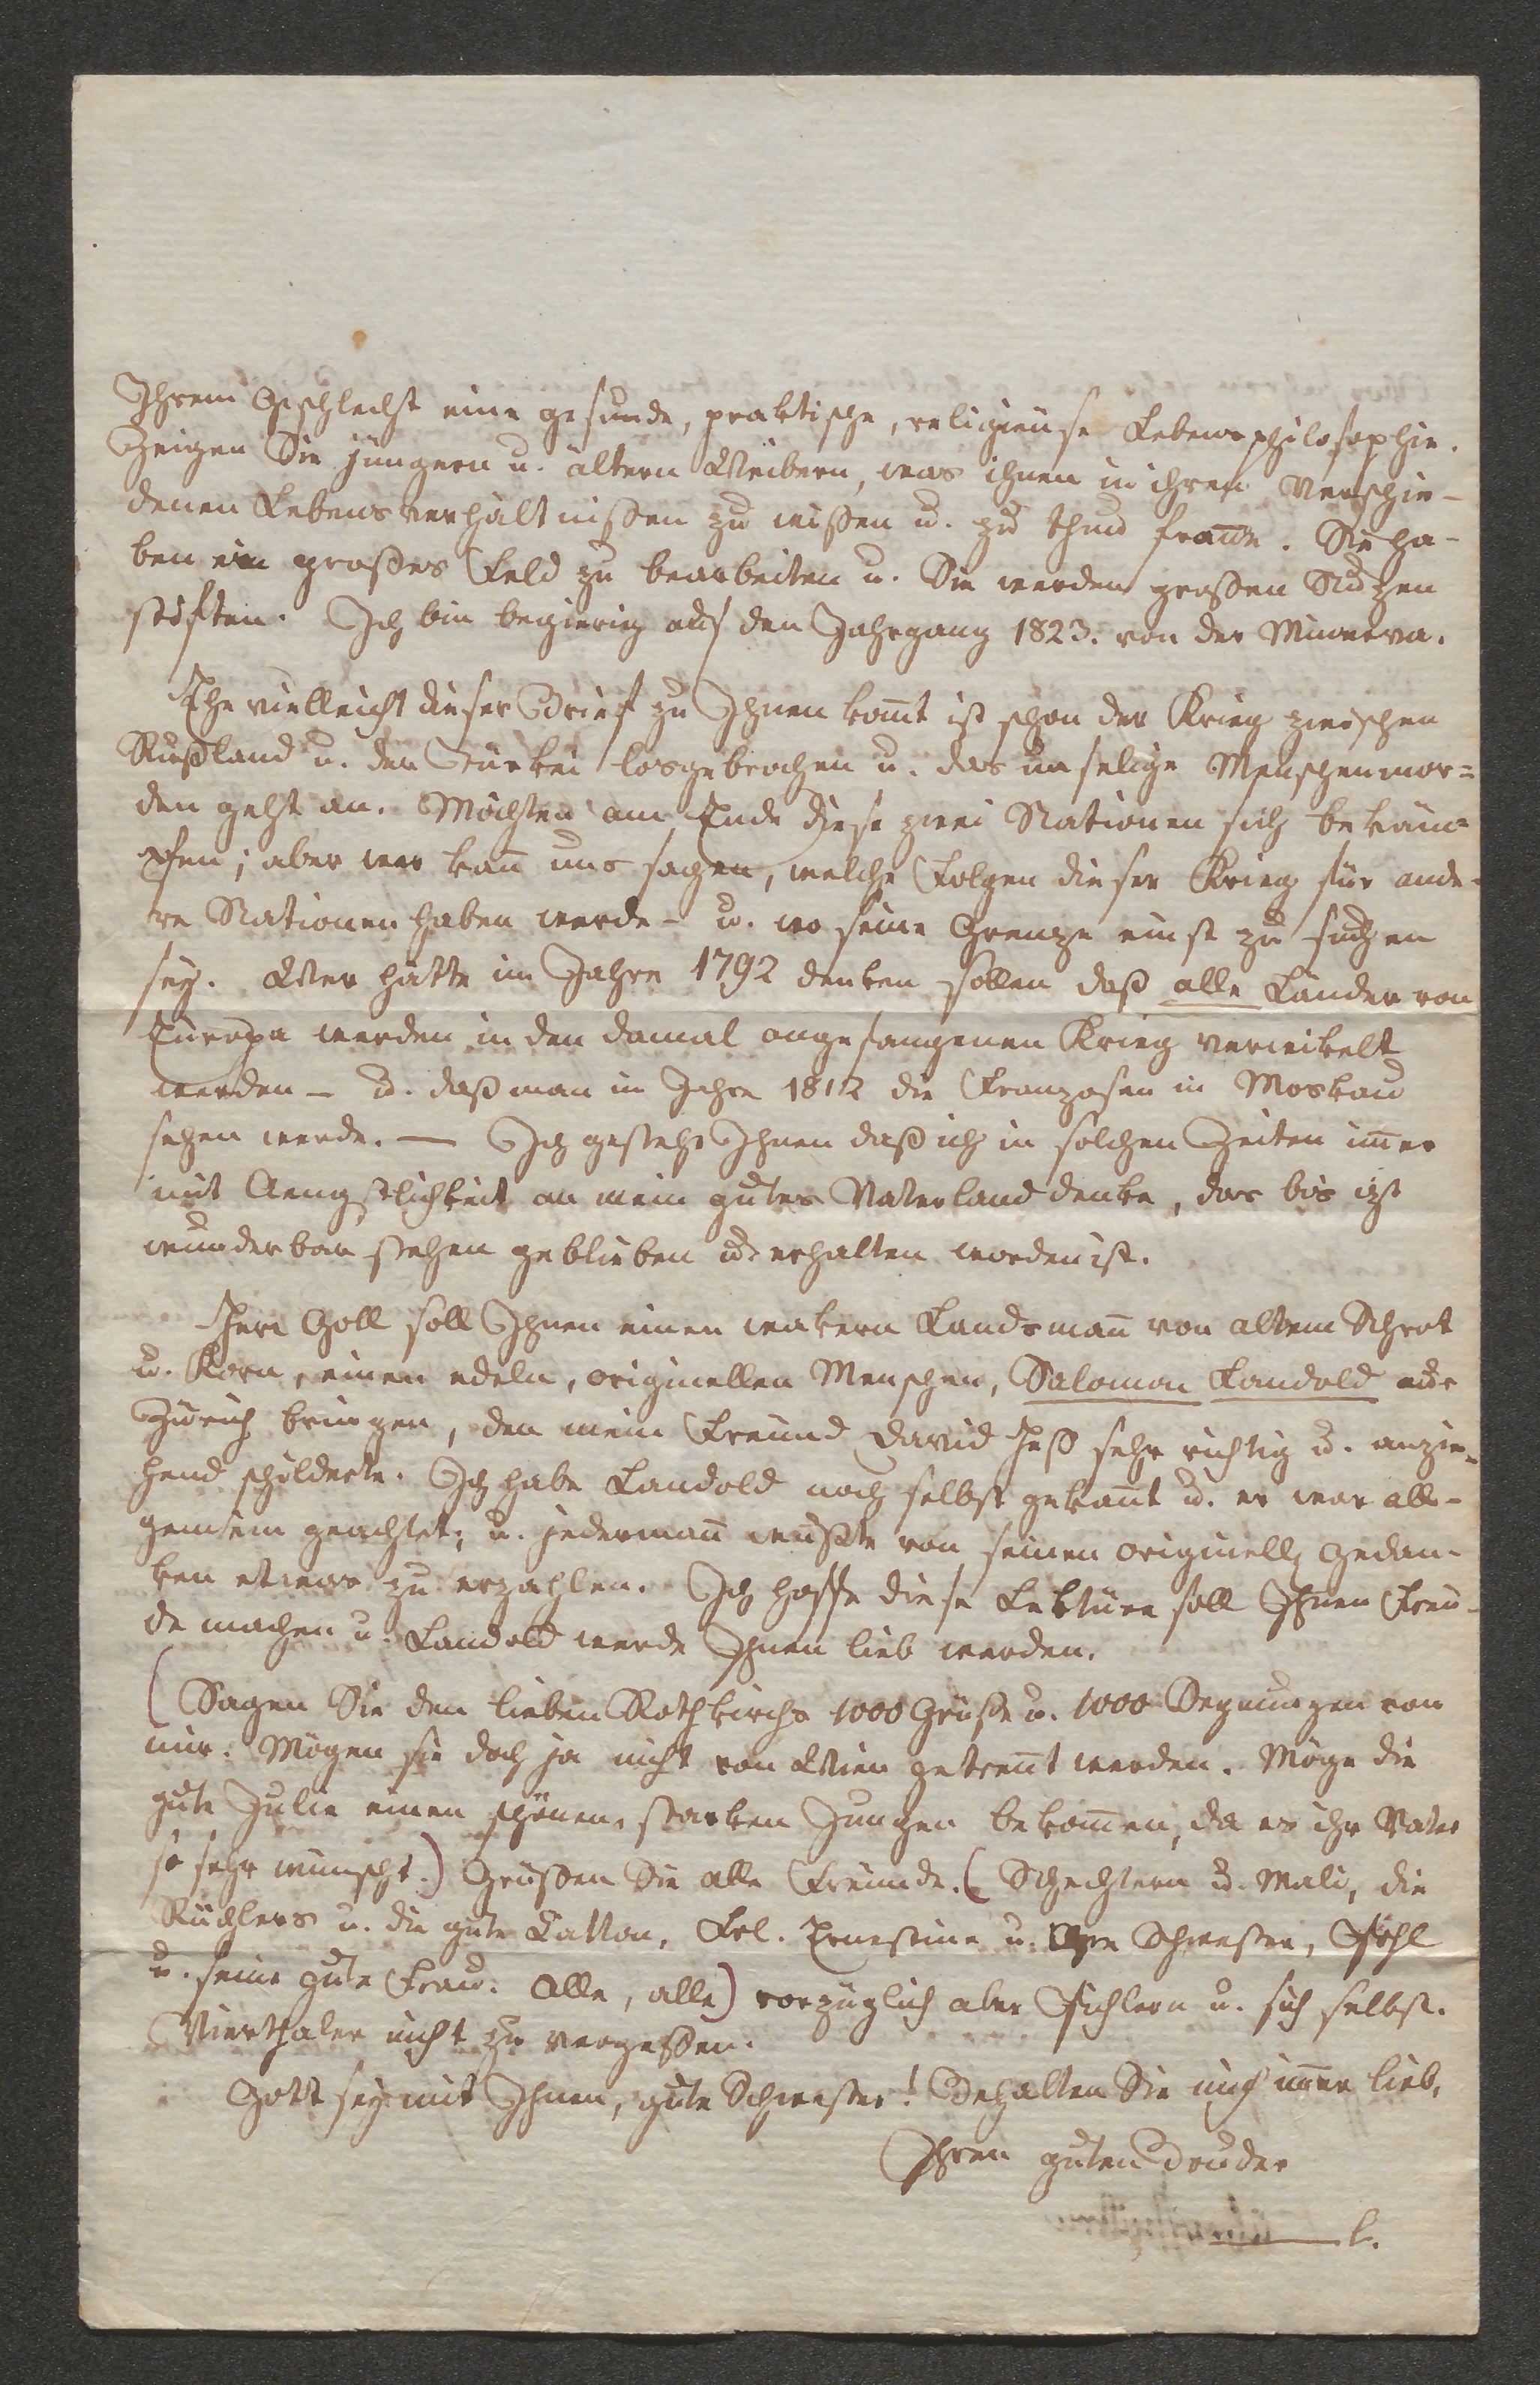 Ihrem Geschlecht eine gesunde, praktische, religieuse Lebensphilosophie.
Zeigen Sie jüngern u. ältern Weibern, was ihnen in ihren verschie-
denen Lebensverhältnißen zu wissen u. zu thun from̄e. Sie ha-
ben ein großes Feld zu bearbeiten u. Sie werden großen Nutzen
stiften. Ich bin begierig auf den Jahrgang 1823. von der Minerva.
Ehe vielleicht dieser Brief zu Ihnen kom̄t ist schon der Krieg zwischen
Rußland u. der Türkei losgebrochen u. das unselige Menschenmor=
den geht an. Möchten am Ende diese zwei Nationen sich bekäm=
pfen; aber wer kan̄ uns sagen, welche Folgen dieser Krieg für ande-
re Nationen haben werde – u. wo seine Grenze einst zu suchen
sey. Wer hätte im Jahre 1792 denken sollen daß alle Länder von
Europa werden in den damal angefangenen Krieg verwikelt
werden – u. daß man im Jahre 1812 die Franzosen in Moskau
sehen werde. — Ich gestehe Ihnen daß ich in solchen Zeiten im̄er
mit Aengstlichkeit an mein gutes Vaterland denke, das bis izt
wunderbar stehen geblieben u. erhalten worden ist.
Herr Goll soll Ihnen einen wakern Landsman̄ von altem Schrot
u. Korn, einen edeln, originellen Menschen, Salomon Landold aus
Zürich bringen, den mein Freund David Heß sehr richtig u. anzie-
hend schilderte. Ich habe Landold noch selbst gekan̄t u. er war all-
gemein geachtet; u. jederman̄ wußte von seinen originell Gedan-
ken etwas zu erzahlen. Ich hoffe diese Lektüre soll Ihnen Freu-
de machen u. Landold werde Ihnen lieb werden.
(Sagen Sie den lieben Rothkirchs 1000 Grüße u. 1000 Segnungen von
mir. Mögen sie doch ja nicht von Wien getren̄t werden. Möge die
gute Julie einen schönen, starken Jungen bekom̄en, da es ihr Vater
so sehr wünscht.) Grüßen Sie alle Freunde. (Schechtern u. Mali, die
Büchlers u. die gute Catton, Frl. Ernestine u. Ihre Schwester, Pohl
u. seine gute Frau. Alle, alle) vorzüglich aber Pichlern u. sich selbst.
Vierthaler nicht zu vergeßen.
Gott sey mit Ihnen, gute Schwester! Behalten Sie mich im̄er lieb,
Ihren guten Bruder
l.